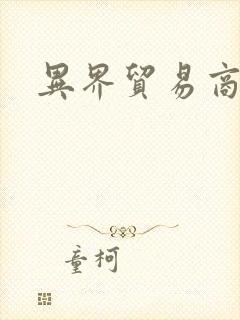 異界貿易商
童柯